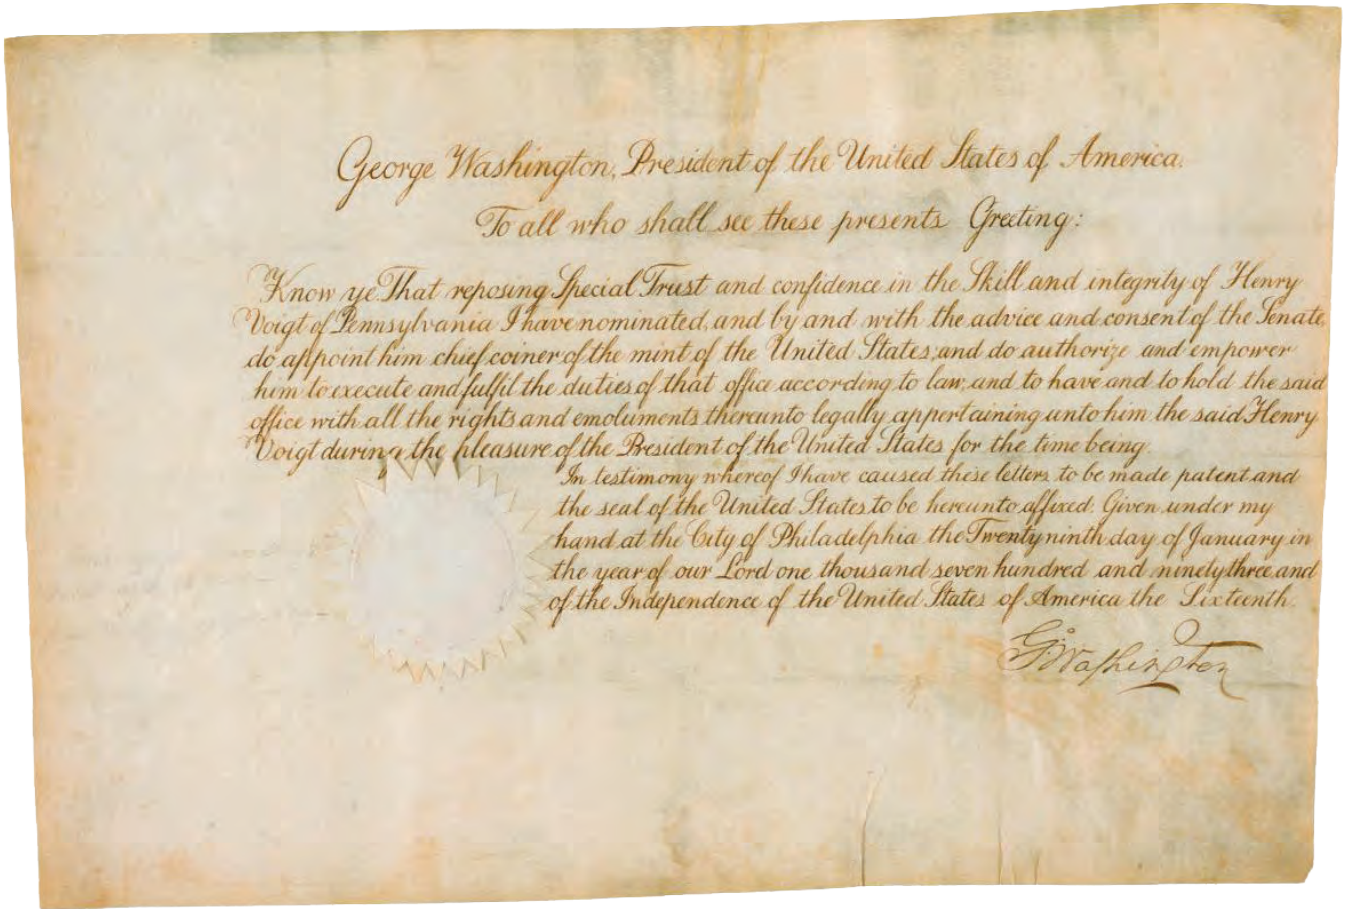 George Washington, President of the United States of America.
To all who shall see these presents Greeting:
Know ye That reposing Special Trust and confidence in the Skill and integrity of Henry
Voigt of Pennsylvania I have nominated, and by and with the advice and consent of the Senate,
do appoint him chief coiner of the mint of the United States; and do authorize and empower
him to execute and fulfil the duties of that office according to law; and to have and to hold the said
office with all the rights and emoluments thereunto legally appertaining unto him the said Henry
Voigt during the pleasure of the President of the United States for the time being.
In testimony whereof I have caused these letters to be made patent and
the seal of the United States to be hereunto affixed. Given under my
hand at the City of Philadelphia the Twenty ninth day of January in
the year of our Lord one thousand seven hundred and ninety three, and
of the Independence of the United States of America the Sixteenth.
G:Washington